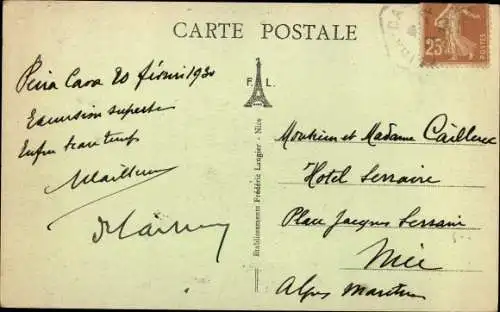 CARTE POSTALE
25
F. L.
Etablissements Frédéric Laugier - Nice
Peira Cava 20 février 1930
Excursion superbe
Enfin beau temps
Monsieur et Madame Cailleux
Hotel
Place Jacques
Nice
Alpes Maritimes